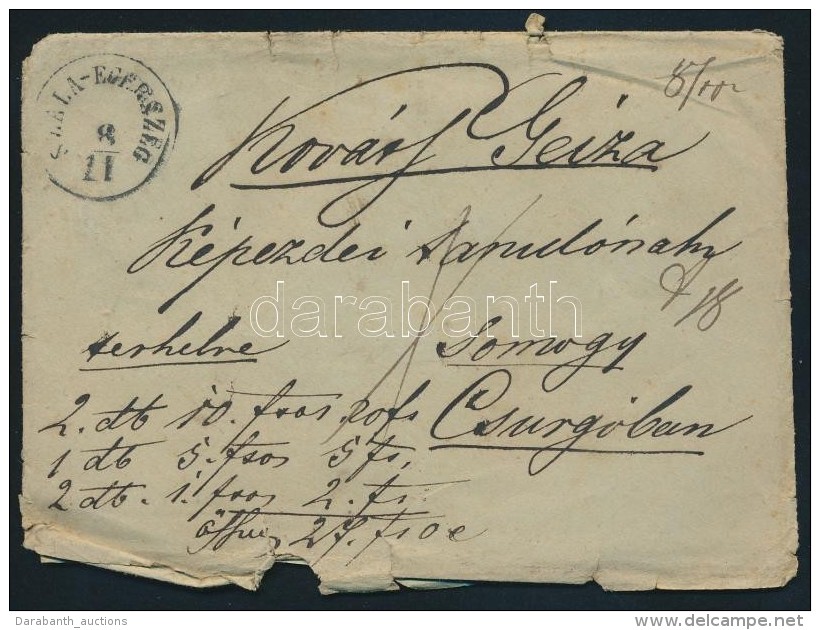 SZALA-EGERSZEG
8
11
Kováts Geiza
Képezdei tanulónak
terhelve Somogy
Csurgóban
2. db 10. ftos 20 ft
1 db 5. ftos 5 ft.
2 db. 1. ftos 2. ft
27. ft 0 e
18
darabanth
Darabanth_auctions
www.delcampe.net